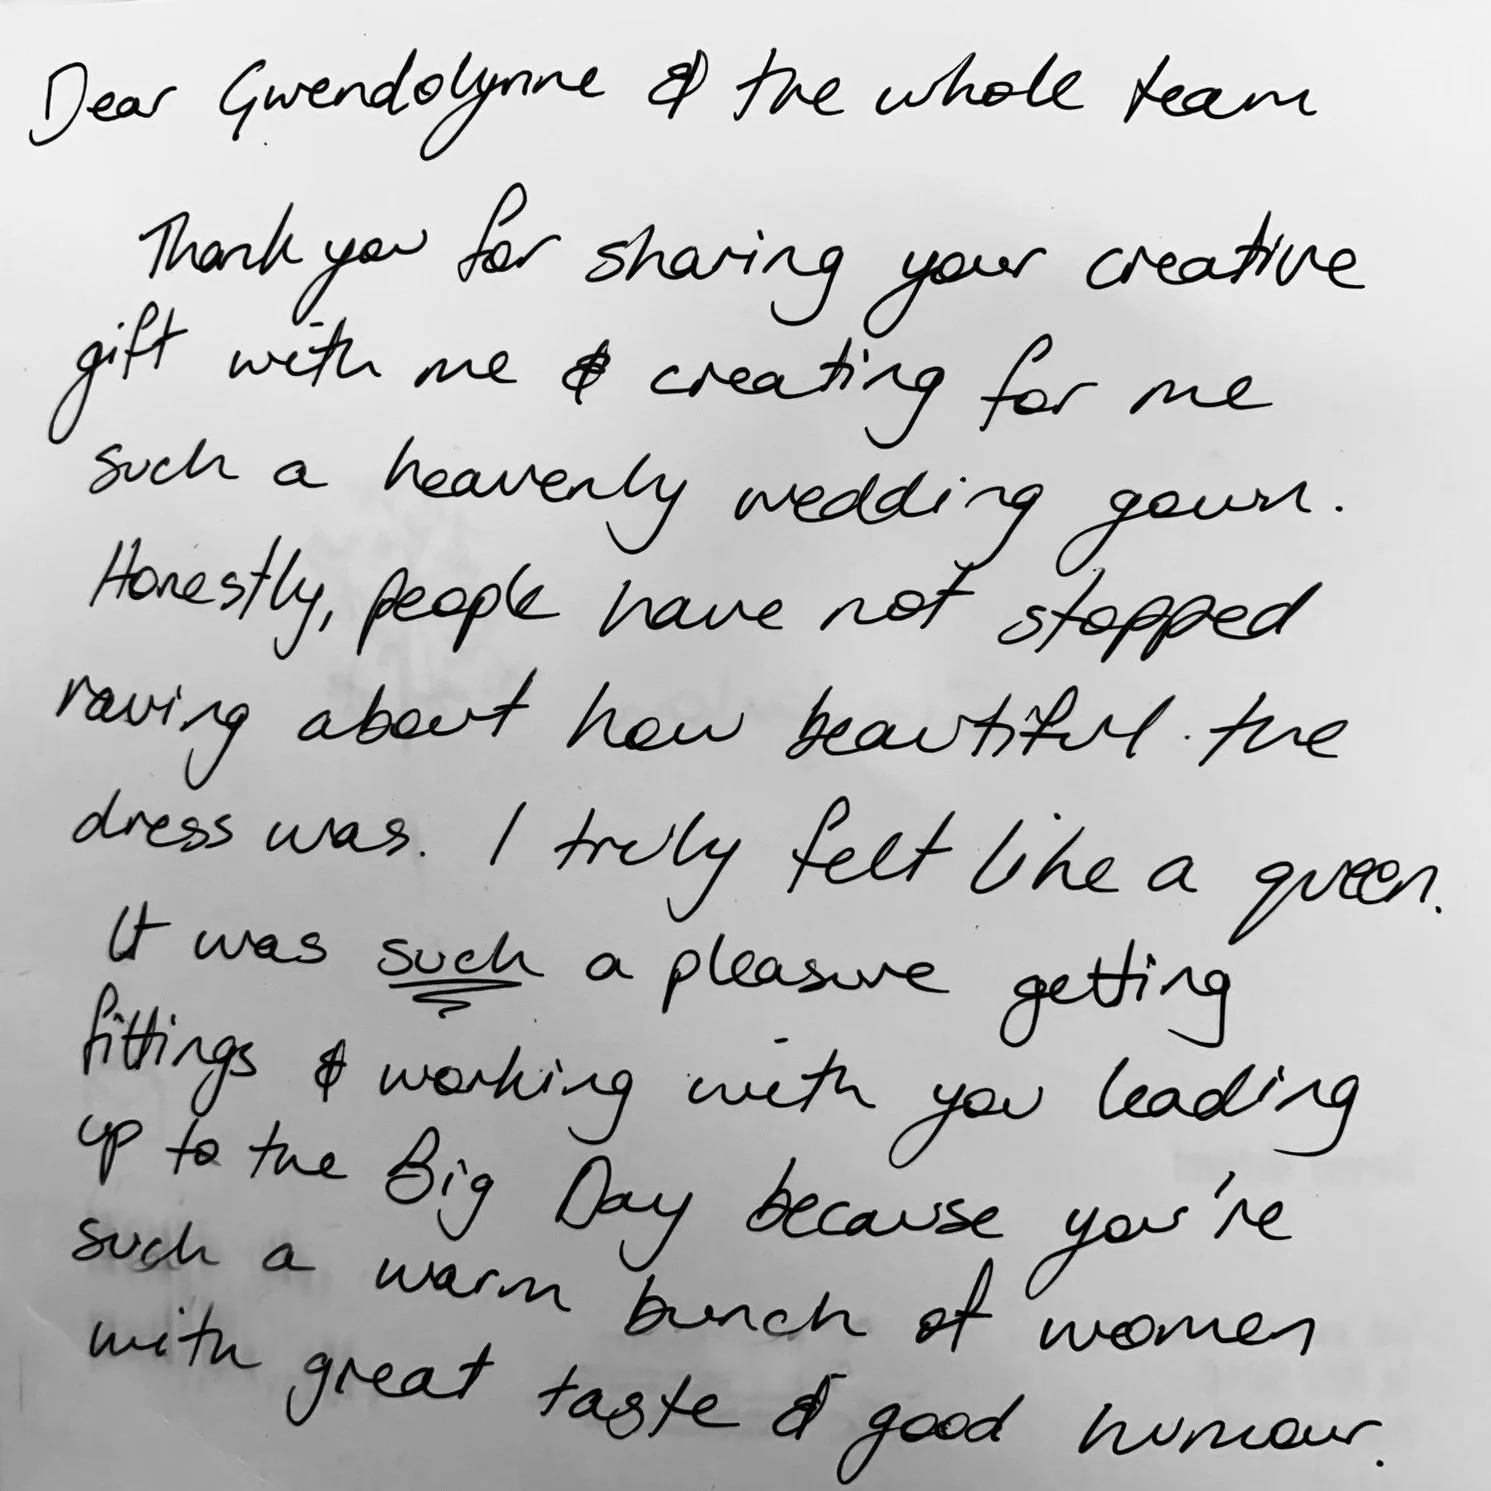 Dear Gwendolynne & the whole team
Thank you for sharing your creative
gift with me & creating for me
such a heavenly wedding gown.
Honestly, people have not stopped
raving about how beautiful the
dress was. I truly felt like a queen.
It was such a pleasure getting
fittings & working with you leading
up to the Big Day because you're
such a warm bunch of women
with great taste & good humour.